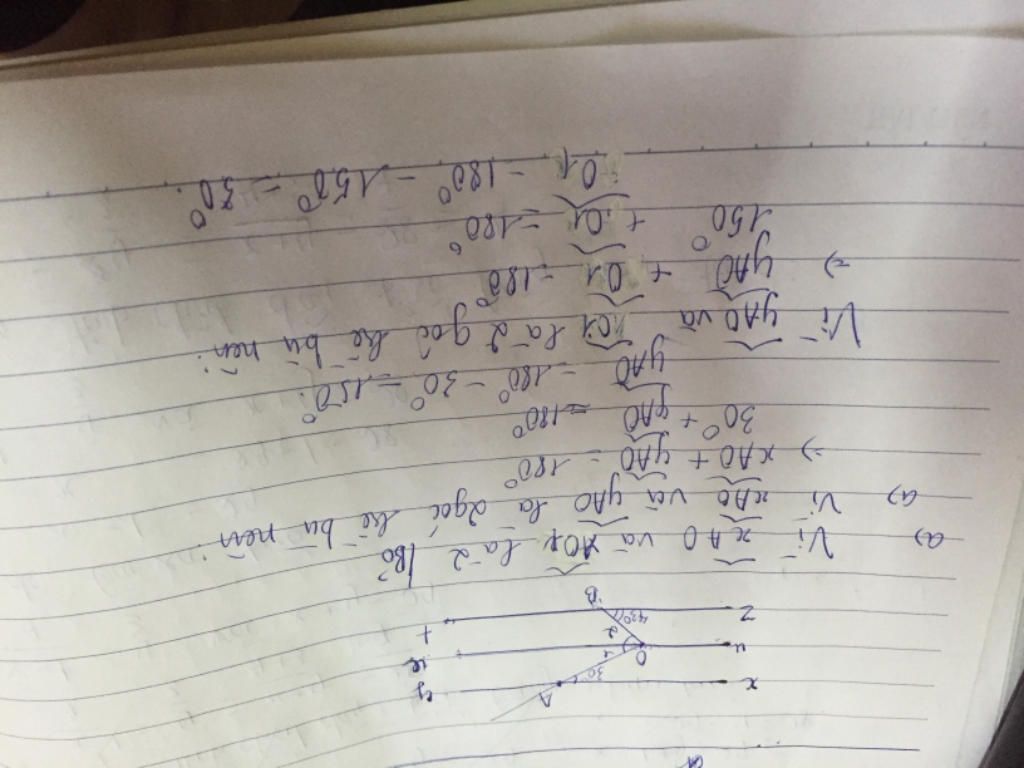 x 30° A y
u O 1
2
z 43° B t
a) Vì xAO và là 2
a) Vì xAO và yAO là 2góc kề bù nên:
=> xAO + yAO = 180°
30° + yAO = 180°
yAO = 180° - 30° = 150°.
Vì yAO và O1 là 2 góc kề bù nên:
=> yAO + O1 = 180°
150° + O1 = 180°
O1 = 180° - 150° = 30°.